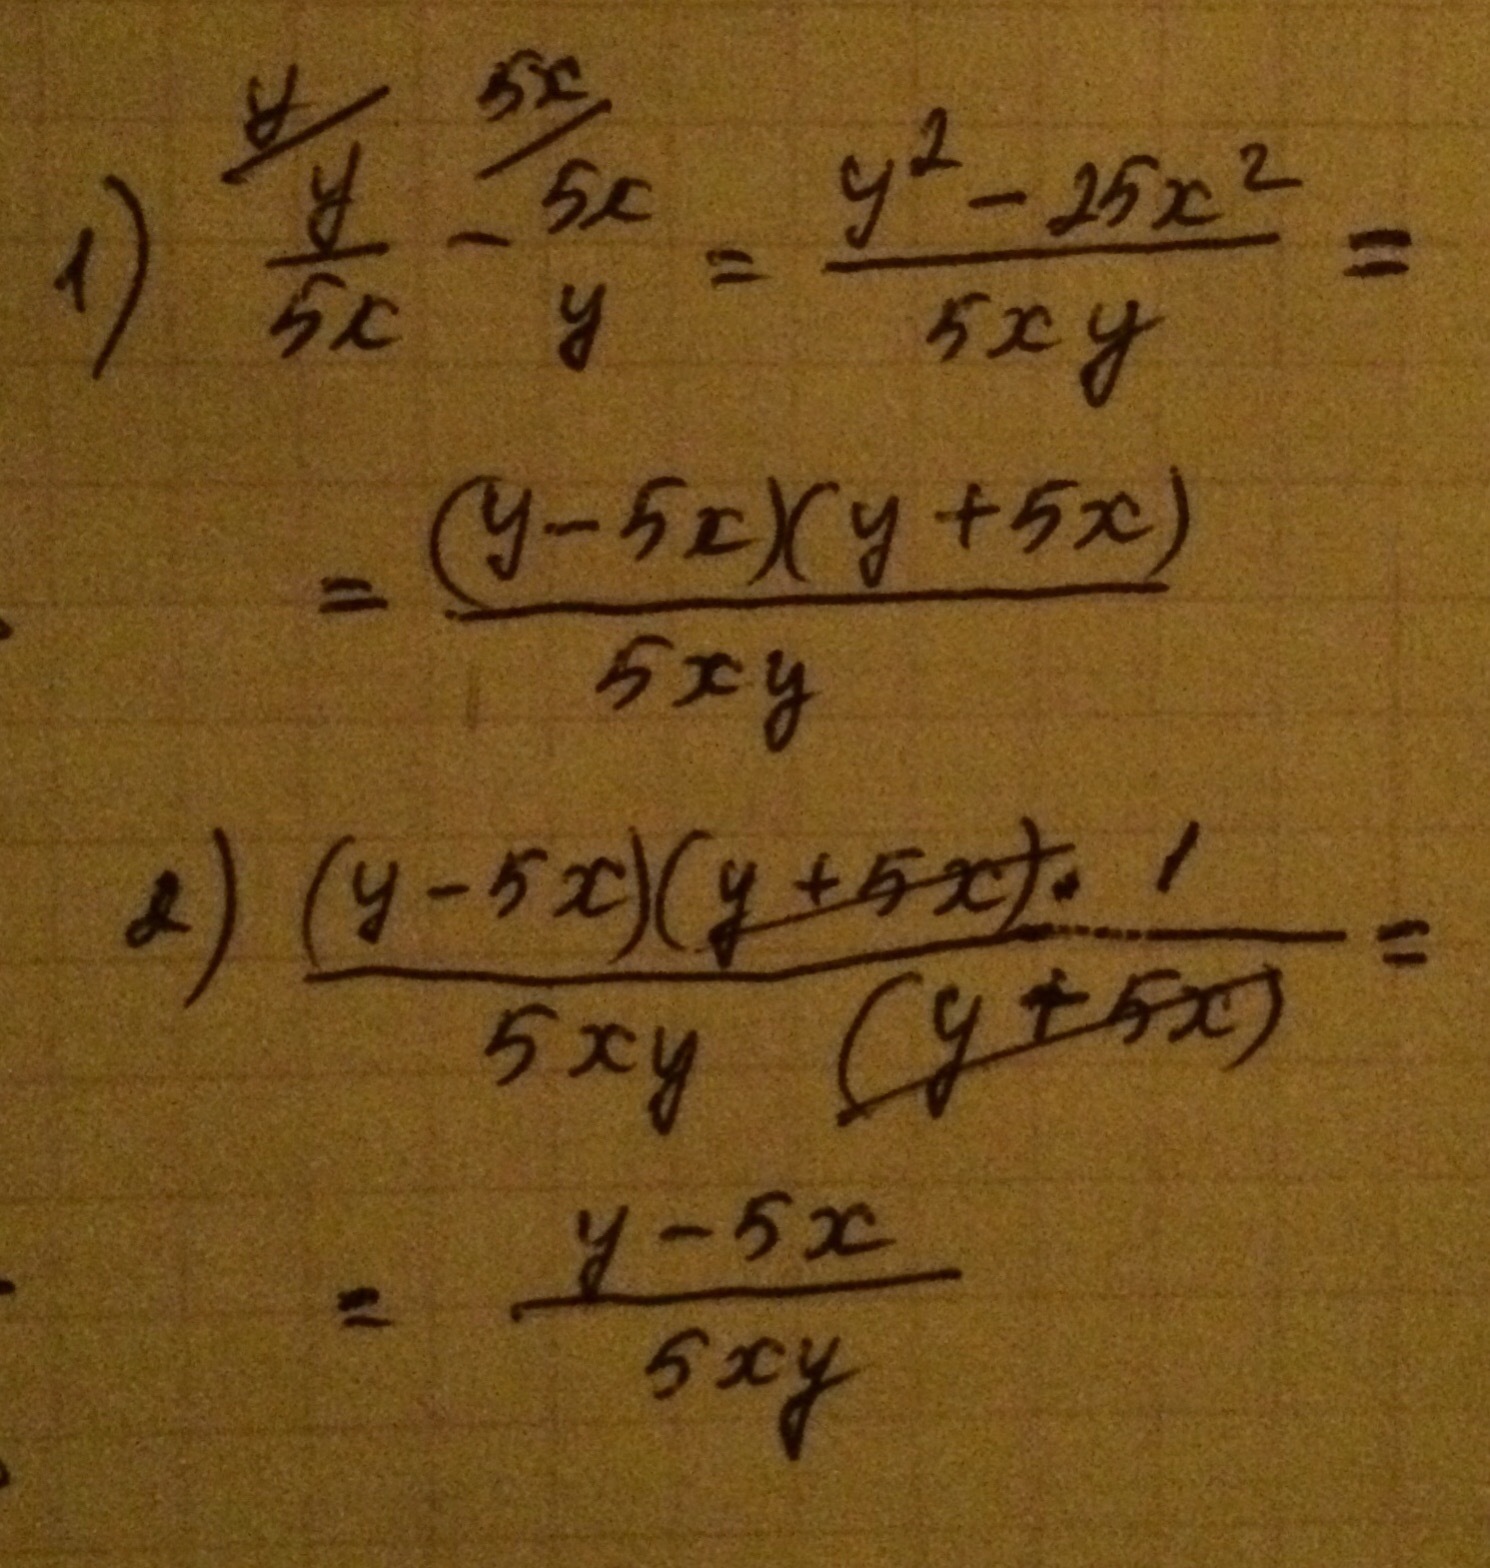 1) y/ y/5x - 5x/ 5x/y = (y² - 25x²)/5xy =
= (y - 5x)(y + 5x)/5xy
2) (y - 5x)(y + 5x) · 1/5xy (y + 5x) =
= y - 5x/5xy